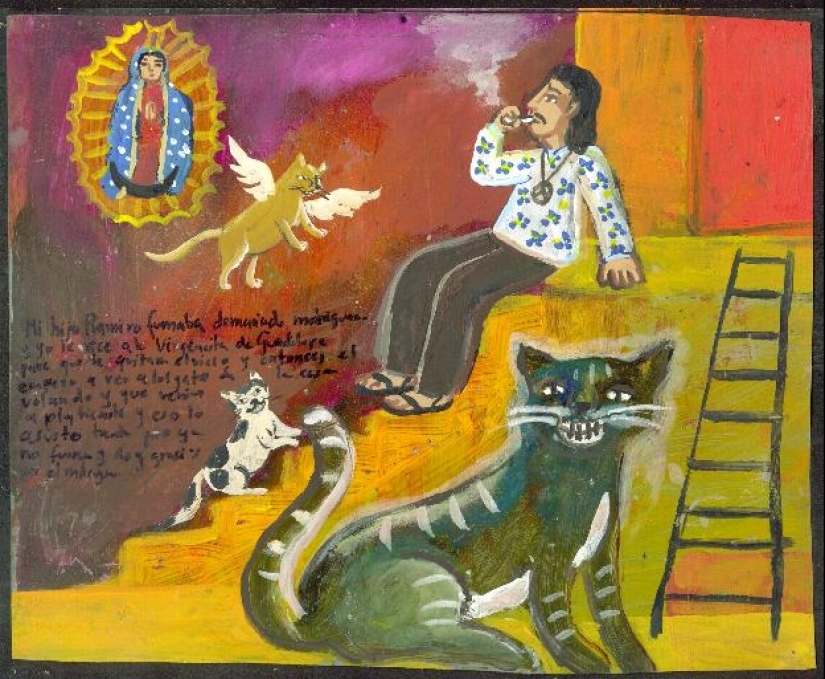 Mi hijo Ramiro fumaba demaciado
y yo le rece a la Virgencita de Guadalupe
para que le quitara el vicio y entonces el
empeso a ver a los gatos de la casa
volando y que venian
a platicarle y eso lo
asusto tanto que ya
no fuma y doy gracias